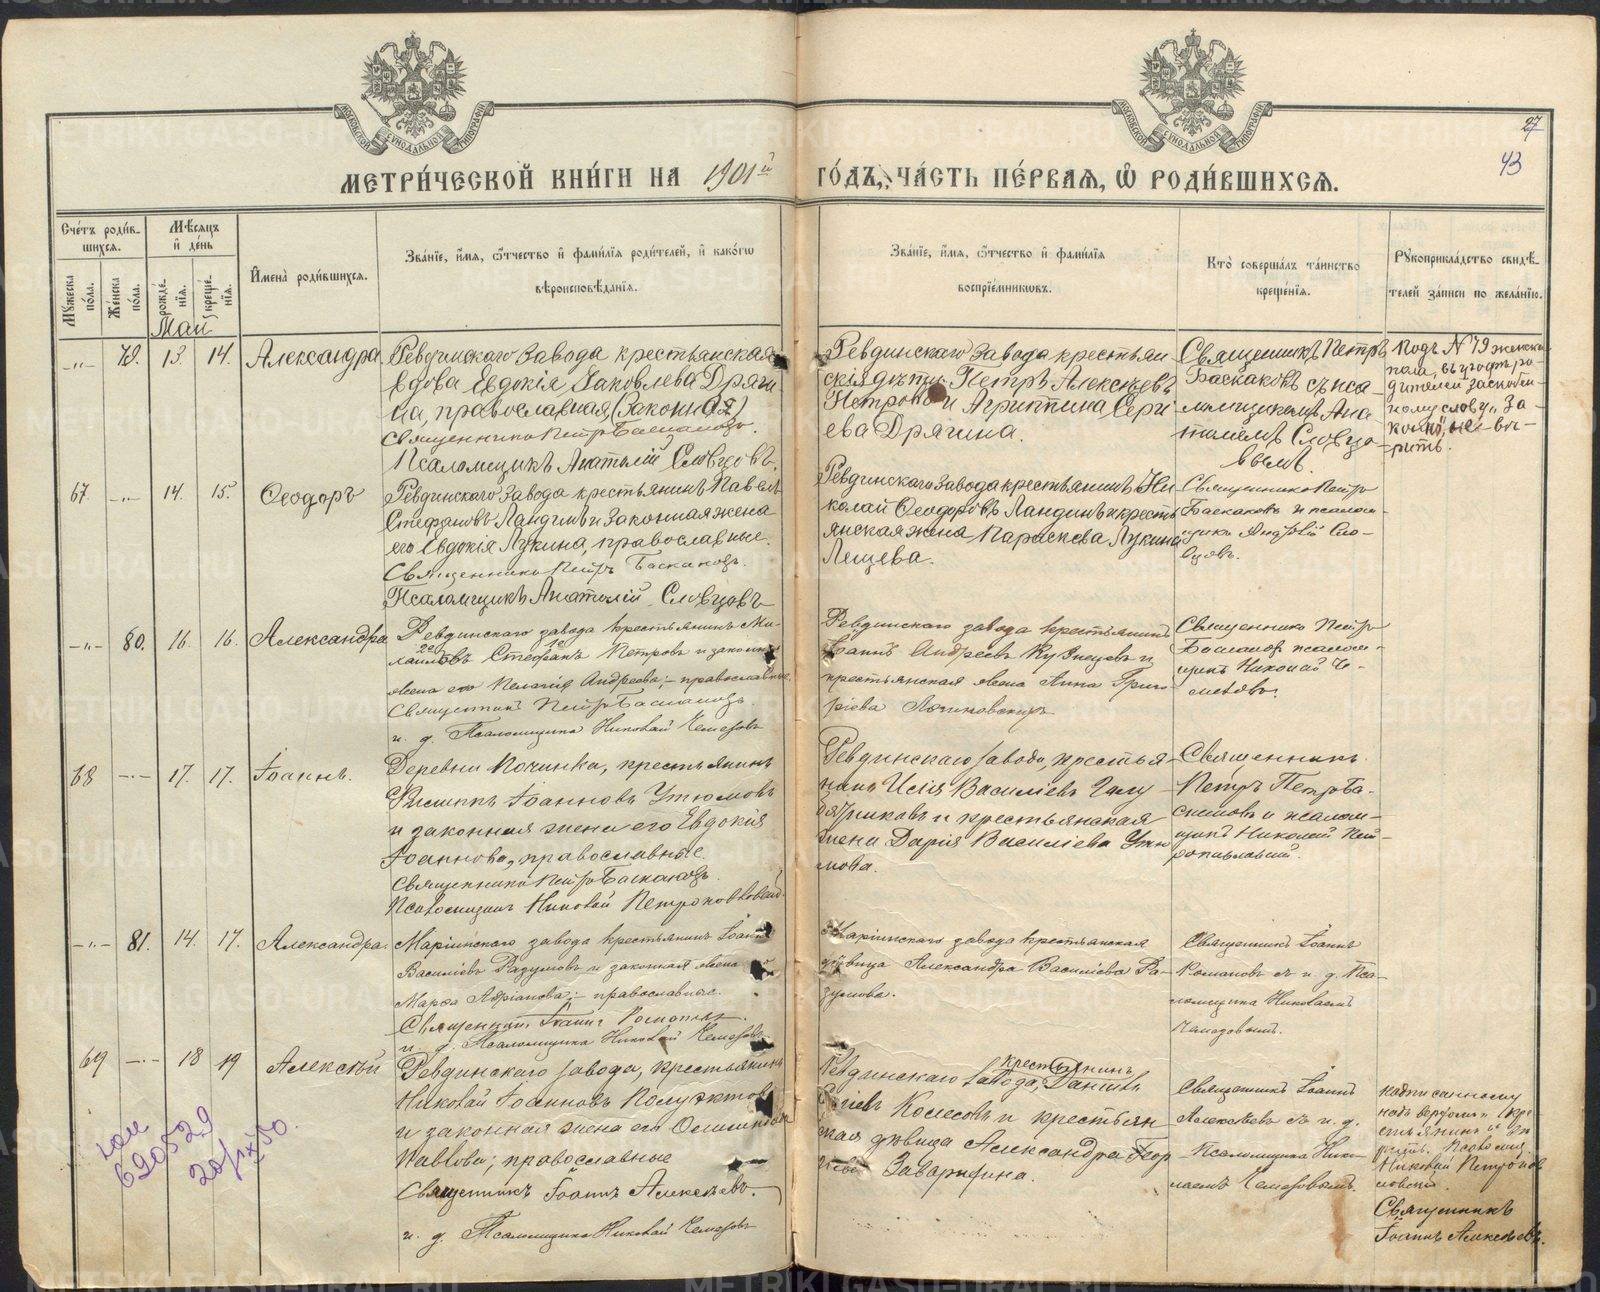 27
43
МЕТРИ́ЧЕСКОЙ КНИ́ГИ НА 1901й ГО́ДЪ, ЧА́СТЬ ПЕ́РВАѦ, Ѡ РОДИ́ВШИХСѦ.
Сче́тъ роди́вшихсѧ.
Мꙋжеска по́ла.
Же́нска по́ла.
Мѣ́сѧцъ и҆ де́нь
рожде́нїѧ.
креще́нїѧ.
И҆мена̀ роди́вшихсѧ.
Зва́нїе, и҆́мѧ, ѻ҆́тчество и҆ фами́лїѧ роди́телей, и҆ како́гѡ
вѣроисповѣ́данїѧ.
Зва́нїе, и҆́мѧ, ѻ҆́тчество и҆ фами́лїѧ
воспрїе́мниковъ.
Кто̀ соверша́лъ та́инство
креще́нїѧ.
Рꙋкоприкла́дство свидѣ́-
телей за́писи по жела́нїю.
Май
-„- 79. 13. 14. Александра
Ревдинскаго завода крестьянская
вдова Евдокія Іаковлева Дряги
на, православная (Законная)
Священникъ Петръ Баскаковъ.
Псаломщикъ Анатолій Словцовъ.
Ревдинскаго завода крестьян
скія дѣти Петръ Алексѣевъ
Петровъ и Агриппина Серги
ева Дрягина.
Священникъ Петръ
Баскаковъ съ пса-
ломщикомъ Ана
толіемъ Словцо-
вымъ.
Подъ № 79 женска
пола, въ графѣ ро
дителей
ному слову „За
конно", не вѣ-
рить.
67. -„- 14. 15. Ѳеодоръ
Ревдинскаго завода крестьянинъ Павелъ
Стефановъ Ландинъ и законная жена
его Евдокія Лукина, православные.
Священникъ Петръ Баскаковъ.
Псаломщикъ Анатолій Словцовъ
Ревдинскаго завода крестьянинъ Ни
колай Ѳеодоровъ Ландинъ и кресть
янская жена Параскева Лукина
Лещева.
Священникъ Петръ
Баскаковъ и псалом-
щикъ Сло-
вцовъ.
-„- 80. 16. 16. Александра
Ревдинскаго завода крестьянинъ Ми-
2е 1е
Стефанъ Петровъ и законная
жена его Пелагія Андреева; – православные.
Священникъ Петръ Баскаковъ
и. д. Псаломщика Николай Чемезовъ
Ревдинскаго завода крестьянинъ
Іоаннъ Андреевъ Кузнецовъ и
крестьянская жена Анна Григо
ріева
Священникъ Петръ
Баскаковъ псалом-
щикъ Николай Че-
мезовъ.
68 -„- 17. 17. Іоаннъ.
Деревни Починка, крестьянинъ
Филиппъ Іоанновъ Утюмовъ
и законная жена его Евдокія
Іоаннова, православные.
Священникъ Петръ Баскаковъ.
Псаломщикъ Николай Петропавловскій
Ревдинскаго завода, крестья-
нинъ Илія Василіевъ Галу
и крестьянская
жена Дарія Василіева Утю
мова.
Священникъ
Петръ Петровъ Ба-
скаковъ и псалом-
щикъ Николай Пет-
ропавловскій.
-„- 81. 14. 17. Александра.
Маріинскаго завода крестьянинъ Іоаннъ
Василіевъ Разумовъ и законная жена его
Марѳа Адріанова; – православные.
Священникъ Іоаннъ
и. д. Псаломщика Николай Чемезовъ
Маріинскаго завода крестьянская
дѣвица Александра Василіева Ра-
зумова.
Священникъ Іоаннъ
съ и. д. Пса-
ломщика Николаемъ
Чемезовымъ.
69 -„- 18 19 Алексѣй
Ревдинскаго завода, крестьянинъ
Николай Іоанновъ Полуектовъ
и законная жена его
Павлова; православные
Священникъ Іоаннъ Алексѣевъ.
и. д. Псаломщика Николай Чемезовъ
крестьянинъ
Ревдинскаго завода, Даніилъ
Колесовъ и крестьян
ская дѣвица Александра Геор
гіева
Священникъ Іоаннъ
Алексѣевъ съ и. д.
Псаломщика Нико-
лаемъ Чемезовымъ.
надписанному
надъ верхомъ „кре-
стьянинъ" вѣ
рить. Псаломщ.
Николай Петропав
ловскій
Священникъ
Іоаннъ Алексѣевъ.
620529